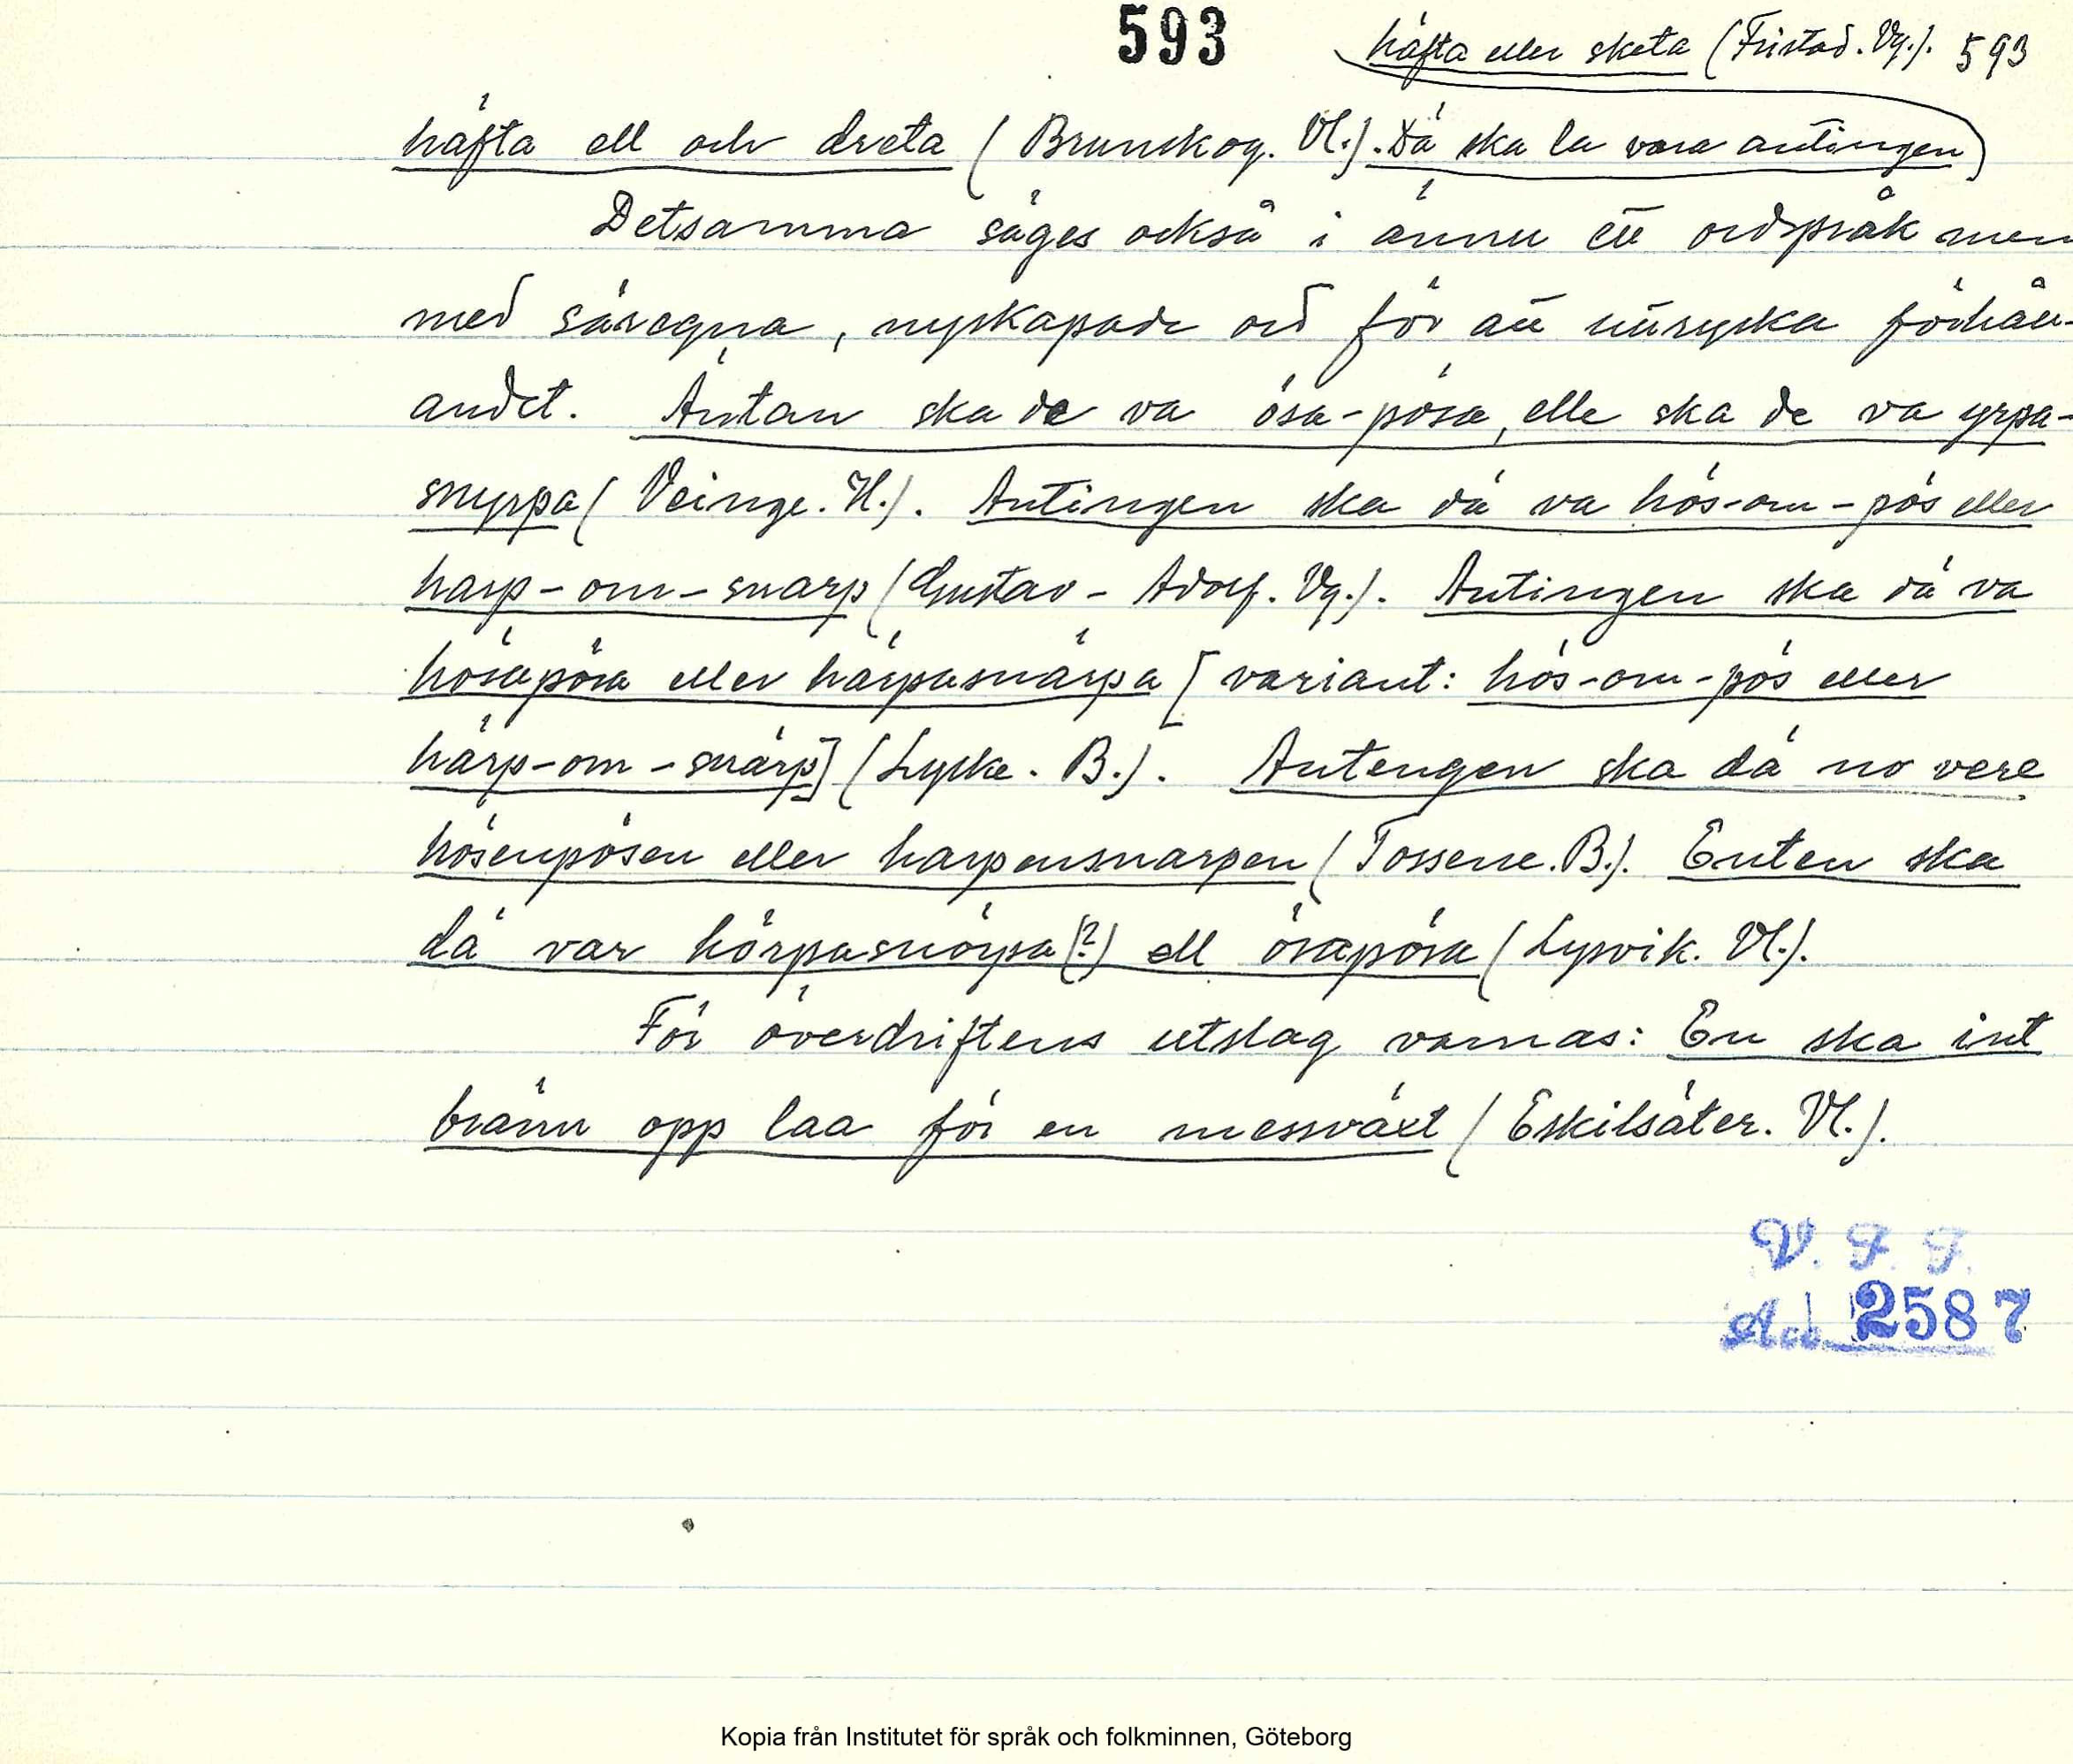 593
häfta eller sketa (Fristad. Vg.). 593
häfta ell och dreta (Brunskog. Vl.). Dä ska la vara antingen
Detsamma säges också i ännu ett ordspråk men
med säregna, nyskapade ord för att uttrycka förhåll-
andet. Äntan ska de va ösa-pösa, elle ska de va yrpa-
snyrpa (Veinge. H.). Antingen ska dä va hös-om-pös eller
harp-om-snarp (Gustav-Adolf. Vg.). Antingen ska dä va
hösapösa eller härpasnärpa [variant: hös-om-pös eller
härp-om-snärp] (Lycke. B.). Antengen ska dä no vere
hösenpösen eller harpensnarpen (Tossene. B.). Enten ska
dä var hörpasnörpa (?) ell ösapösa (Lysvik. Vl.).
För överdriftens utslag varnas: En ska int
bränn opp laa för en messväxt (Eskilsäter. Vl.).
V. F. F.
Acc. 2587
Kopia från Institutet för språk och folkminnen, Göteborg